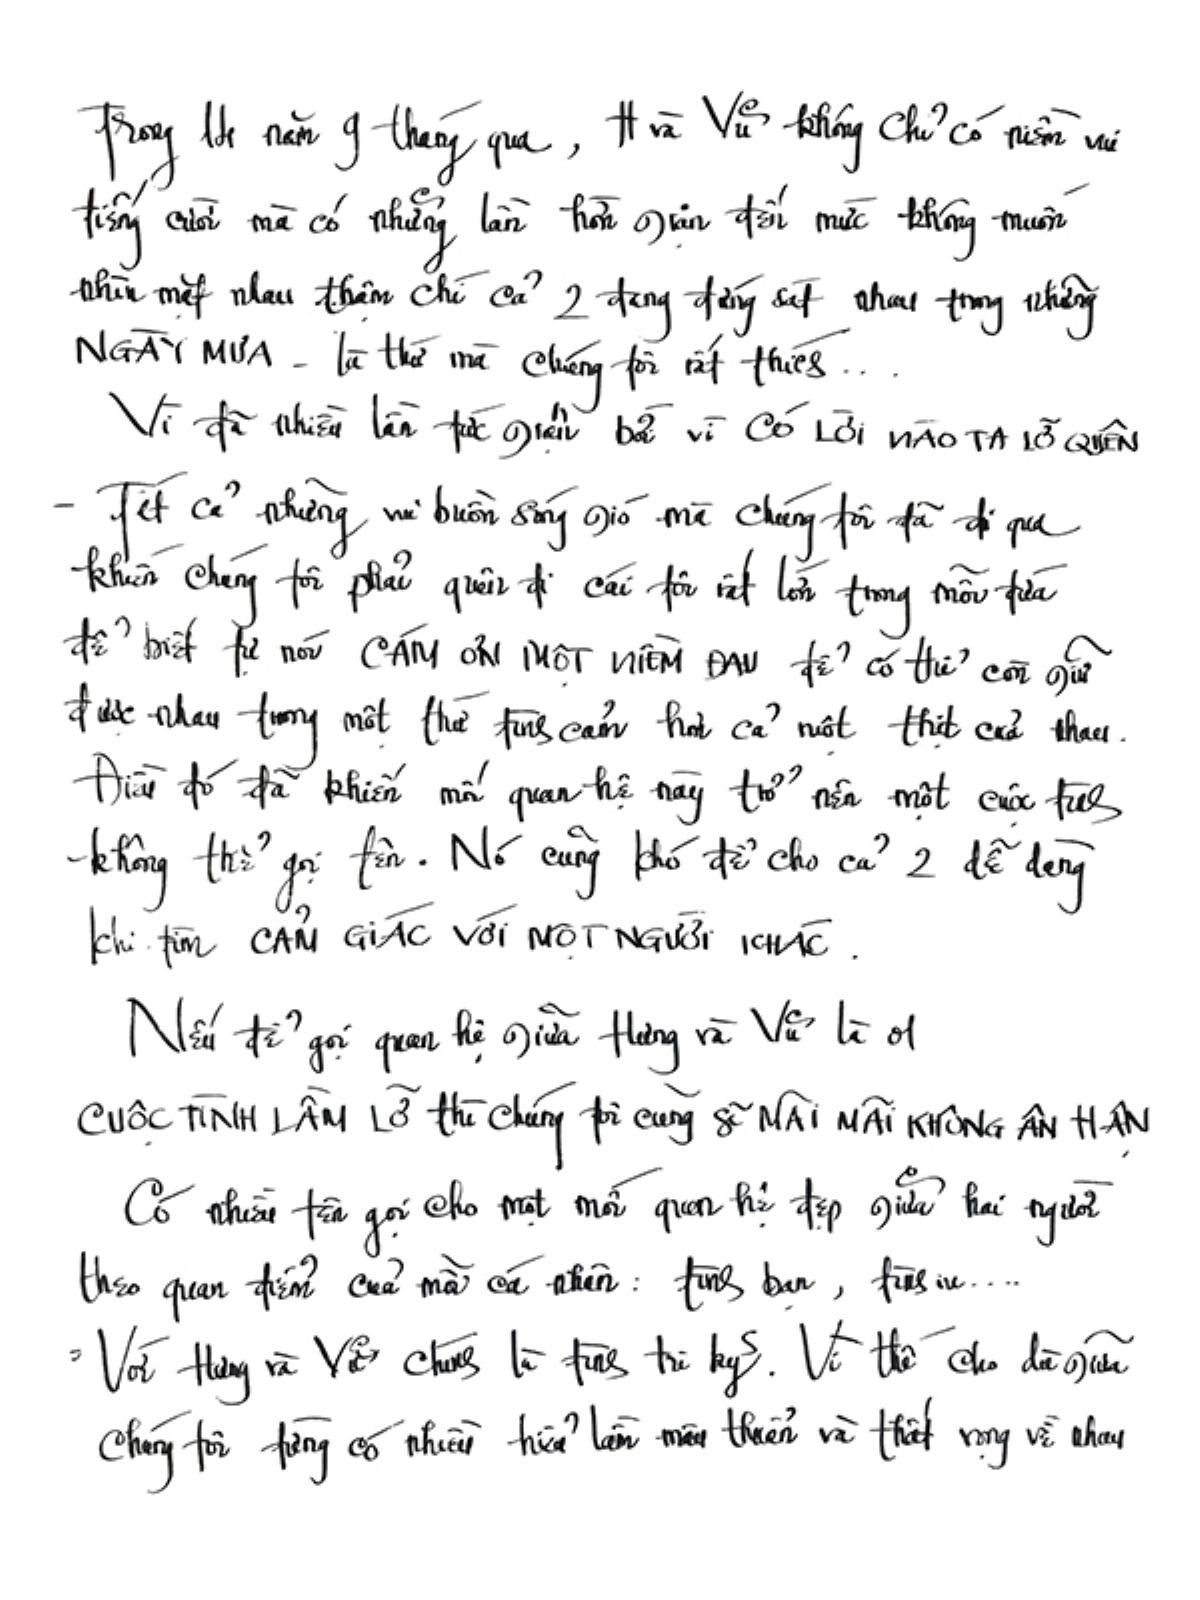 Trong năm 9 tháng qua, H và Vũ không chỉ có niềm vui
tiếng cười mà có những lần hờn giận đến mức không muốn
nhìn mặt nhau thậm chí cả 2 đang đứng sát nhau trong những
NGÀY MƯA - là thứ mà chúng tôi rất thích....
Vì đã nhiều lần tức giận bởi vì CÓ LỜI NÀO TA LỠ QUÊN
- Tất cả những vui buồn sóng gió mà chúng tôi đã đi qua
khiến chúng tôi phải quên đi cái tôi rất lớn trong mỗi đứa
để biết tự nói CÁM ƠN MỘT NIỀM ĐAU để có thể còn giữ
được nhau trong một thứ tình cảm hơn cả ruột thịt của nhau.
Điều đó đã khiến mối quan hệ này trở nên một cuộc tình
không thể gọi tên. Nó cũng khó để cho cả 2 dễ dàng
khi tìm CẢM GIÁC VỚI MỘT NGƯỜI KHÁC.
Nếu để gọi quan hệ giữa Hưng và Vũ là 01
CUỘC TÌNH LẦM LỠ thì chúng tôi cũng sẽ MÃI MÃI KHÔNG ÂN HẬN
Có nhiều tên gọi cho một mối quan hệ đẹp giữa hai người
theo quan điểm của mỗi cá nhân: tình bạn, tình iu....
Với Hưng và Vũ chính là tình tri kỷ. Vì thế cho dù giữa
chúng tôi từng có nhiều hiểu lầm mâu thuẫn và thất vọng về nhau